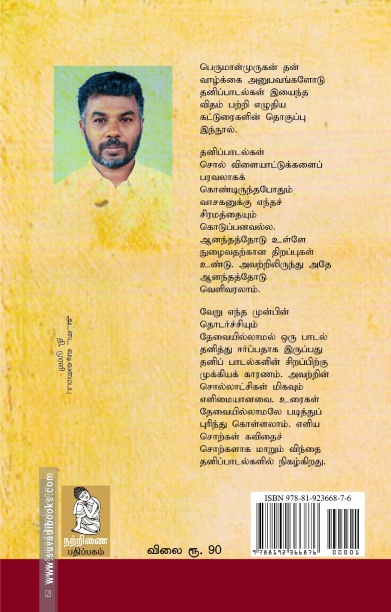 பெருமாள்முருகன் தன்
வாழ்க்கை அனுபவங்களோடு
தனிப்பாடல்கள் இயைந்த
விதம் பற்றி எழுதிய
கட்டுரைகளின் தொகுப்பு
இந்நூல்.
தனிப்பாடல்கள்
சொல் விளையாட்டுக்களைப்
பரவலாகக்
கொண்டிருந்தபோதும்
வாசகனுக்கு எந்தச்
சிரமத்தையும்
கொடுப்பனவல்ல.
ஆனந்தத்தோடு உள்ளே
நுழைவதற்கான திறப்புகள்
உண்டு. அவற்றிலிருந்து அதே
ஆனந்தத்தோடு
வெளிவரலாம்.
வேறு எந்த முன்பின்
தொடர்ச்சியும்
தேவையில்லாமல் ஒரு பாடல்
தனித்து ஈர்ப்பதாக இருப்பது
தனிப் பாடல்களின் சிறப்பிற்கு
முக்கியக் காரணம். அவற்றின்
சொல்லாட்சிகள் மிகவும்
எளிமையானவை. உரைகள்
தேவையில்லாமலே படித்துப்
புரிந்து கொள்ளலாம். எளிய
சொற்கள் கவிதைச்
சொற்களாக மாறும் விந்தை
தனிப்பாடல்களில் நிகழ்கிறது.
www.suvadibooks.com
நற்றிணை
பதிப்பகம்
விலை ரூ. 90
ISBN 978-81-923668-7-6
9 788192 366876
00001